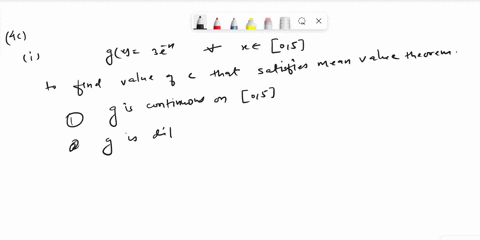 (4c)
(i) g(x) = 3e⁻ˣ ∀ x ∈ [0,5]
to find value of c that satisfies mean value theorem.
① g is continuous on [0,5]
② g is dif